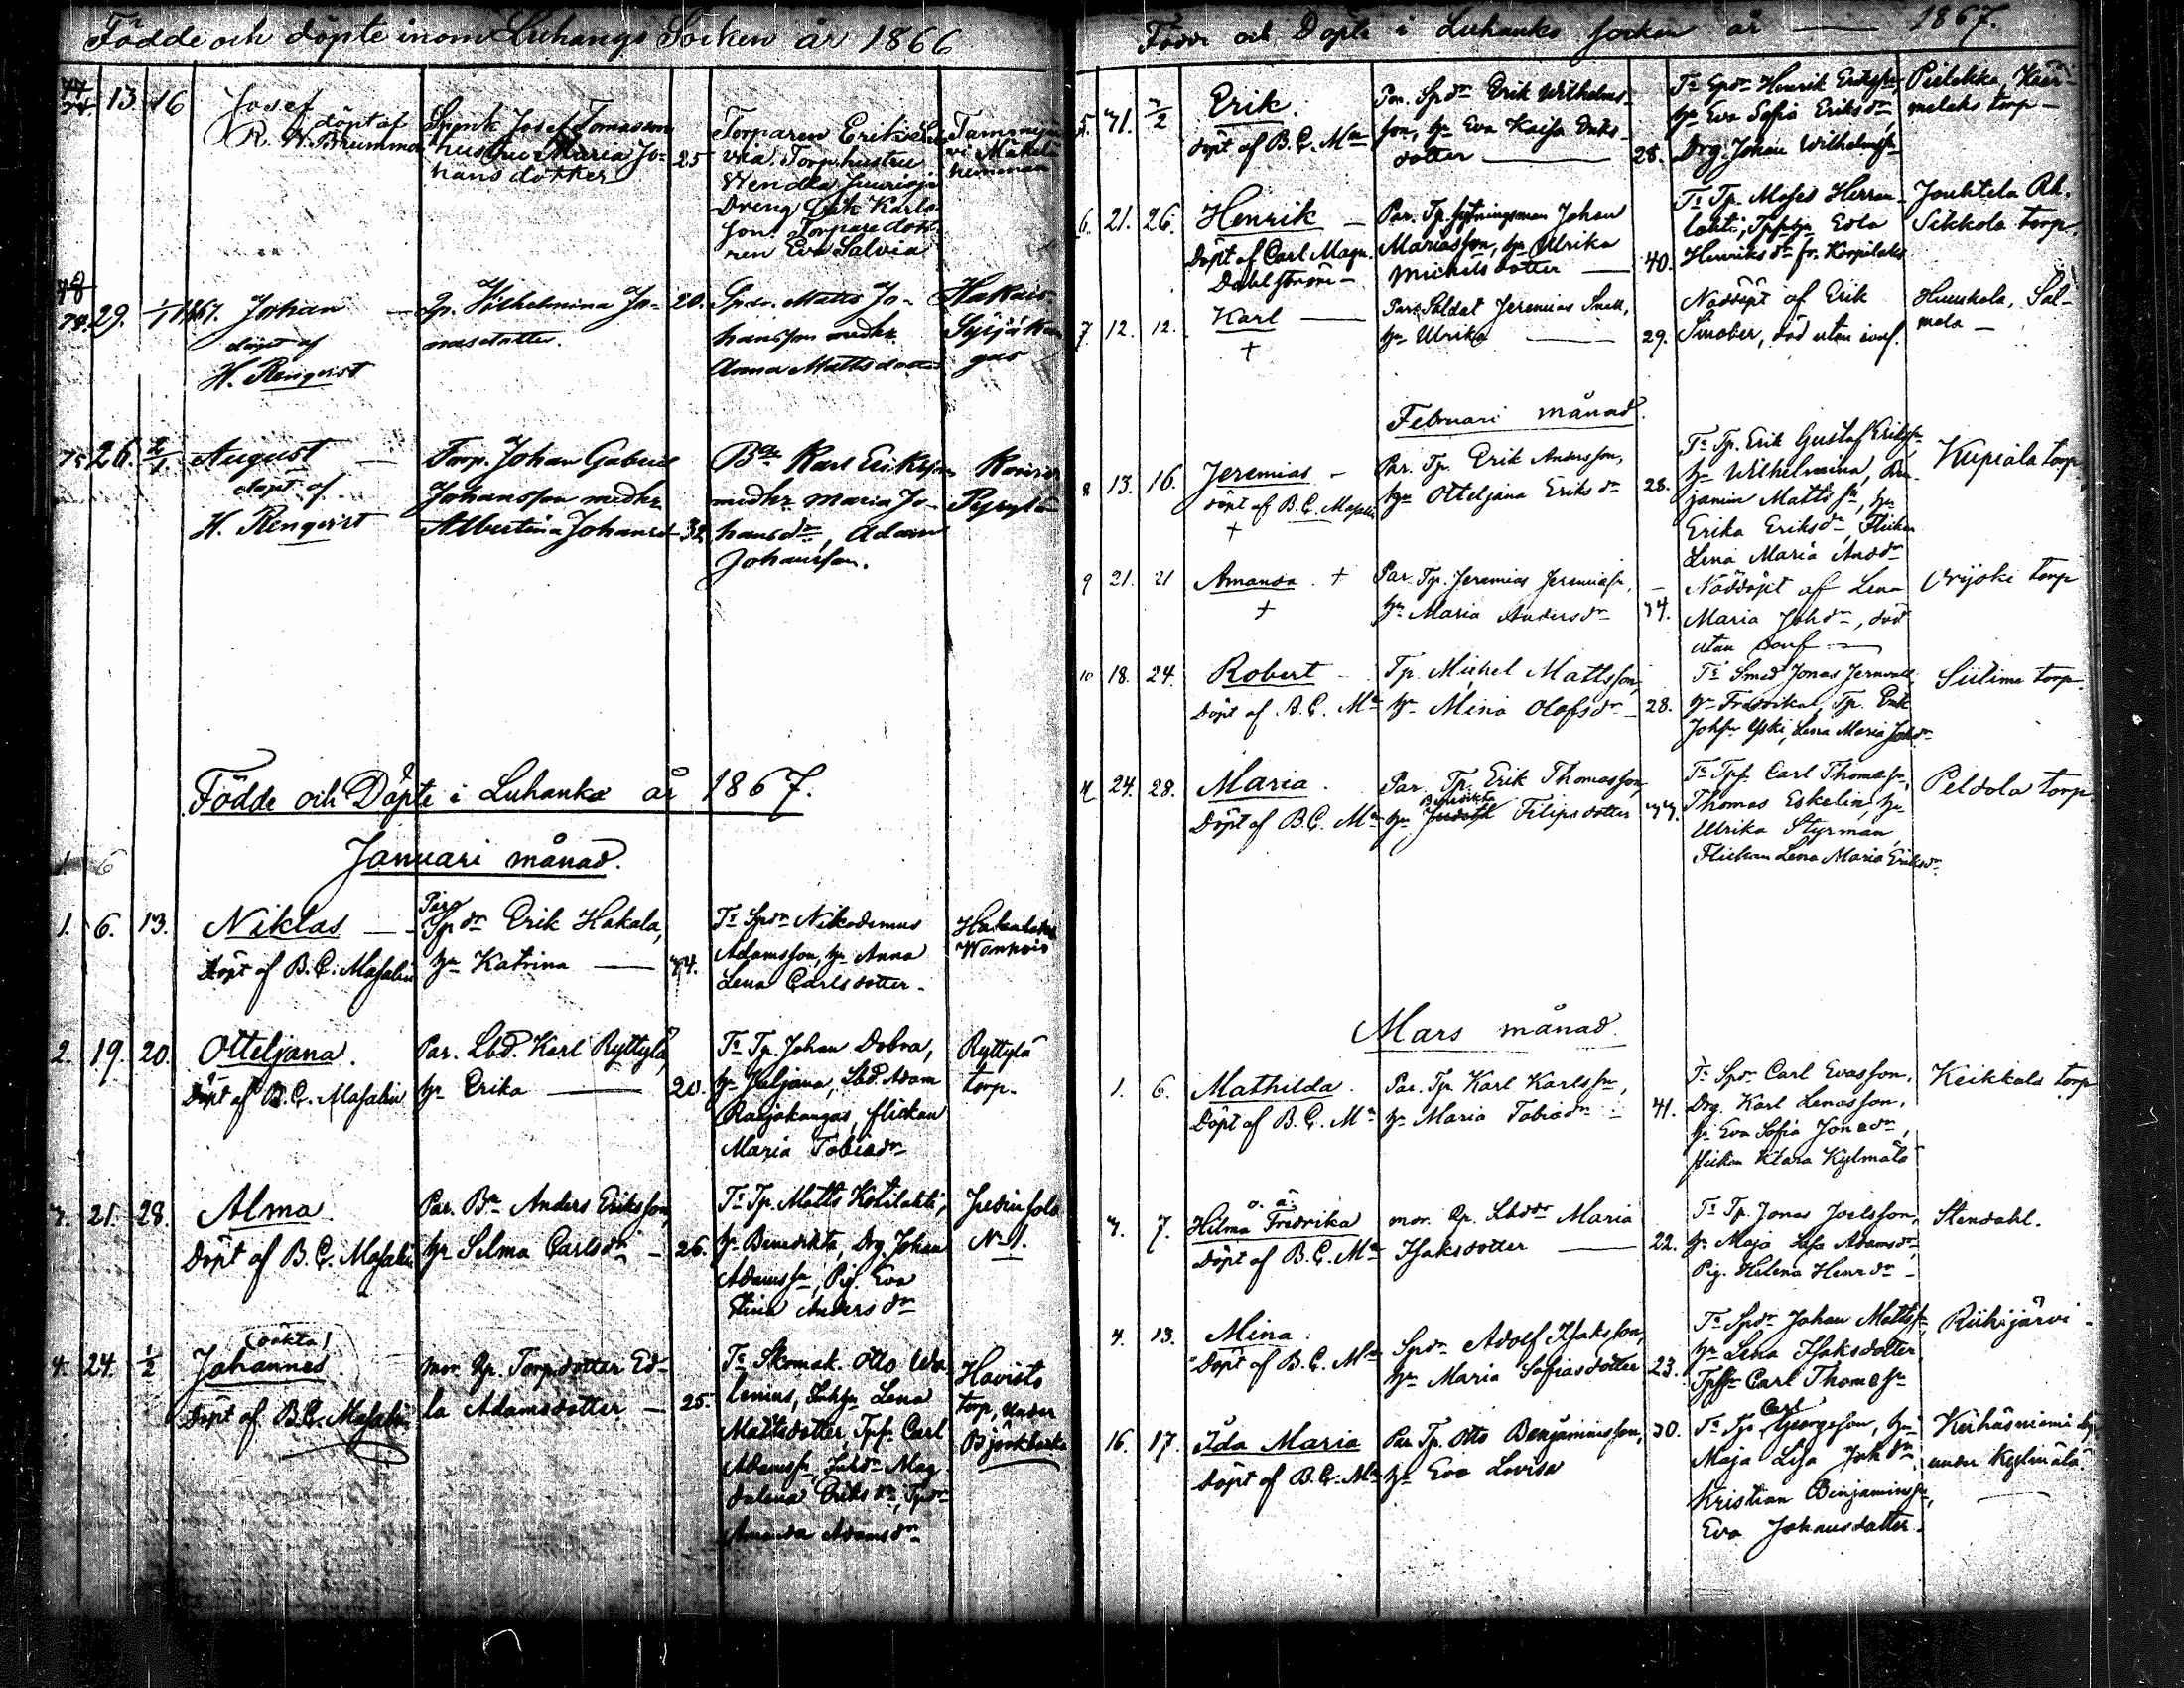 Födde och döpte inom Luhangs Socken år 1866
13 16 Josef
döpt af
R. W. Brummer
Spink Josef Tomasson
hustru Maria Jo-
hans dotter
25
Torparen Erik
via Torp.hustru
Wendla
Dreng Erik Karls
son Torparedott
ren Eva Salvia
hemman
29. 1/1 1867. Johan
döpt af
H. Renqvist
Qp. Wilhelmina Jo-
nasdotter.
20.
Spdr. Matts Jo-
hansson medh.
Anna Mattsdotter
26. 2/1. August
döpt af
H. Renqvist
Torp. Johan Gabriel
Johansson medhr
Albertina Johansd
32
Bde Karl Eriksson
medhr Maria Jo-
hansdr, Adam
Johansson.
Födde och Döpte i Luhanka år 1867.
Januari månad.
1. 6
1. 6. 13. Niklas
Döpt af B. C. Masalin
Par. Spdr Erik Hakala,
hu Katrina
34.
Ts Spdr Nikodemus
Adamsson, hu Anna
Lena Carlsdotter.
2. 19. 20. Otteljana.
Döpt af B. C. Masalin
Par. Lbd. Karl Ryttylä,
hu Erika
20.
Ts Tp. Johan Dobra,
hu Juljana, Lbd. Adam
Rarjakangas, flickan
Maria Tobiadr
Ryttylä
torp.
3. 21. 28. Alma
Döpt af B. C. Masalin
Par. Bn Anders Eriksson,
hu Selma Carlsdr
26.
Ts Tp. Matts Kotilahti,
hu Benedikta, Drg. Johan
Adamssn, Pig. Eva
Stina Andersdr
No 1.
4. 24. 1/2 (oäkta)
Johannes
Döpt af B. C. Masalin
mor. Qp. Torpdotter Ed-
la Adamsdotter
25.
Ts Skomak. Otto Wa-
lenius, Lena
Mattsdotter, Tpf. Carl
Adamssn, Mag
dalena Eriksdr, Tpdr
Amanda Adamsdr
Havisto
torp, under
Björkbacka
Födde och Döpte i Luhanks socken år 1867.
5. 31. 3/2 Erik
döpt af B. C. Mn
Par. Spdr Erik Wilhelms-
son, hu Eva Kaisa Eriks-
dotter
28.
Ts Spdr Henrik Erikssn,
hu Eva Sofia Eriksdr,
Drg. Johan Wilhelmssn
torp
6. 21. 26. Henrik
Döpt af Carl Magn.
Dahlström
Par. Tp. sytningsman Johan
Mariasson, hu Ulrika
Michelsdotter
40.
Ts Tp. Moses Herran-
lahti, Edla
Henriksdr fr. Korpilaks
Jouhtela Rh.
Sikkola torp.
7. 12. 12. Karl
+
Par. Soldat Jeremias Smell,
hu Ulrika
29.
Nöddöpt af Erik
Sinober, död utan conf.
Huuskola, Sal-
mela
Februari månad.
8 13. 16. Jeremias
döpt af B. C. Masalin
+
Par. Tp. Erik Andersson,
hu Otteljana Eriksdr
28.
Ts Tp. Erik Gustaf Erikssn,
hu Wilhelmina, Ben-
jamin Mattssn, hu
Erika Eriksdr, Flickan
Lena Maria Andsdr
Kupiala torp
9 21. 21 Amanda. +
+
Par. Tp. Jeremias Jeremiassn,
hu Maria Andersdr
34.
Nöddöpt af Lena
Maria Johdr, död
utan conf
Vrijoki torp
10 18. 24. Robert
Döpt af B. C. Mn
Tp. Michel Mattsson,
hu Mina Olofsdr
28.
Ts Smed Jonas Jernvall,
hu Fredrika, Tp. Erik
Johsn Yski, Lena Maria Johdr
Siilima torp.
11 24. 28. Maria.
Döpt af B. C. Mn
Par. Tp. Erik Thomasson,
Benedikta
hu Judith Filipsdotter
33.
Ts Tpf. Carl Thomassn,
Thomas Eskelin, hu
Ulrika Styrman,
Flickan Lena Maria Eriksdr
Peldola torp
Mars månad.
1. 6. Mathilda.
Döpt af B. C. Mn
Par. Tp. Karl Karlssn,
hu Maria Tobiadr
41.
Ts Spdr Carl Evasson,
Drg. Karl Lenasson,
hu Eva Sofia Jonadr,
flickan Klara Kylmälä
Keikkala torp
3. 7. o. ä.
Hilma Fredrika
döpt af B. C. Mn
mor. Qp. Lbddr Maria
Isaksdotter
22.
Ts Tp. Jonas Joelsson,
hu Maja Lisa Adamsdr,
Pig. Helena Henrdr
Stendahl.
4. 13. Mina.
Döpt af B. C. Mn
Spdr Adolf Isaksson,
hu Maria Sofiasdotter
23.
Ts Spdr Johan Mattssn,
hu Lena Isaksdotter,
Carl Thomassn
Riihijärvi
16. 17. Ida Maria
döpt af B. C. Mn
Par. Tp. Otto Benjaminsson,
hu Eva Lovisa
30.
Carl
Ts Tp. Georgsson, hu
Maja Lisa Johdr
Kristian Benjaminssn,
Eva Johansdotter.
under Kylmälä